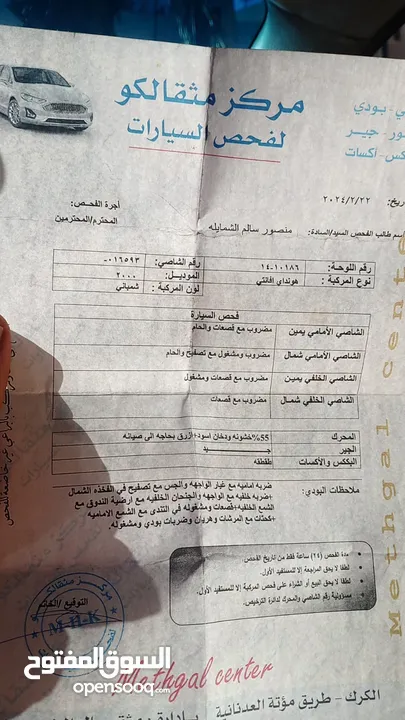 مركز مثقالكو
لفحص السيارات
ي - بودي
ور - جير
كس - اكسات
ريخ: ٢٠٢٤/٢/٢٢
أجرة الفحص:
اسم طالب الفحص السيد/السادة: منصور سالم الشمايله
المحترم/المحترمين
رقم اللوحة: ١٠١٨٦-١٤
رقم الشاصي: ٠١٦٥٩٣
نوع المركبة: هونداي افانتي
الموديل: ٢٠٠٠
لون المركبة: شمباني
فحص السيارة
الشاصي الأمامي يمين مضروب مع قصعات ولحام
الشاصي الأمامي شمال مضروب ومشغول مع تصفيح ولحام
الشاصي الخلفي يمين مضروب مع قصعات ومشغول
الشاصي الخلفي شمال مضروب مع قصعات
المحرك 55%خشونه ودخان اسود+ازرق بحاجه الى صيانه
الجير جيد
البكس والأكسات طقطقه
ملاحظات البودي:
ضربه اماميه مع غيار الواجهه والجس مع تصفيح في الفخذه الشمال
+ضربه خلفيه مع الواجهه والجنحان الخلفيه مع ارضية الندوق مع
الشمع الخلفي+قصعات ومشغوله في التندى مع الشمع الاماميه
+كحتات مع المرشات وهريان وضربات بودي ومشغوله.
مدة الفحص (٢٤) ساعة فقط من تاريخ الفحص.
لطفا لا يحق المراجعة إلا للمستفيد الأول.
لطفا لا يحق البيع أو الشراء على فحص المركبة إلا للمستفيد الأول.
مسؤولية رقم الشاصي والمحرك لدائرة الترخيص.
التوقيع/الخاتم
M-H-K
Methgal center
السوق المفتوح
opensooq.com
الكرك - طريق مؤتة العدنانية
Methgal cente